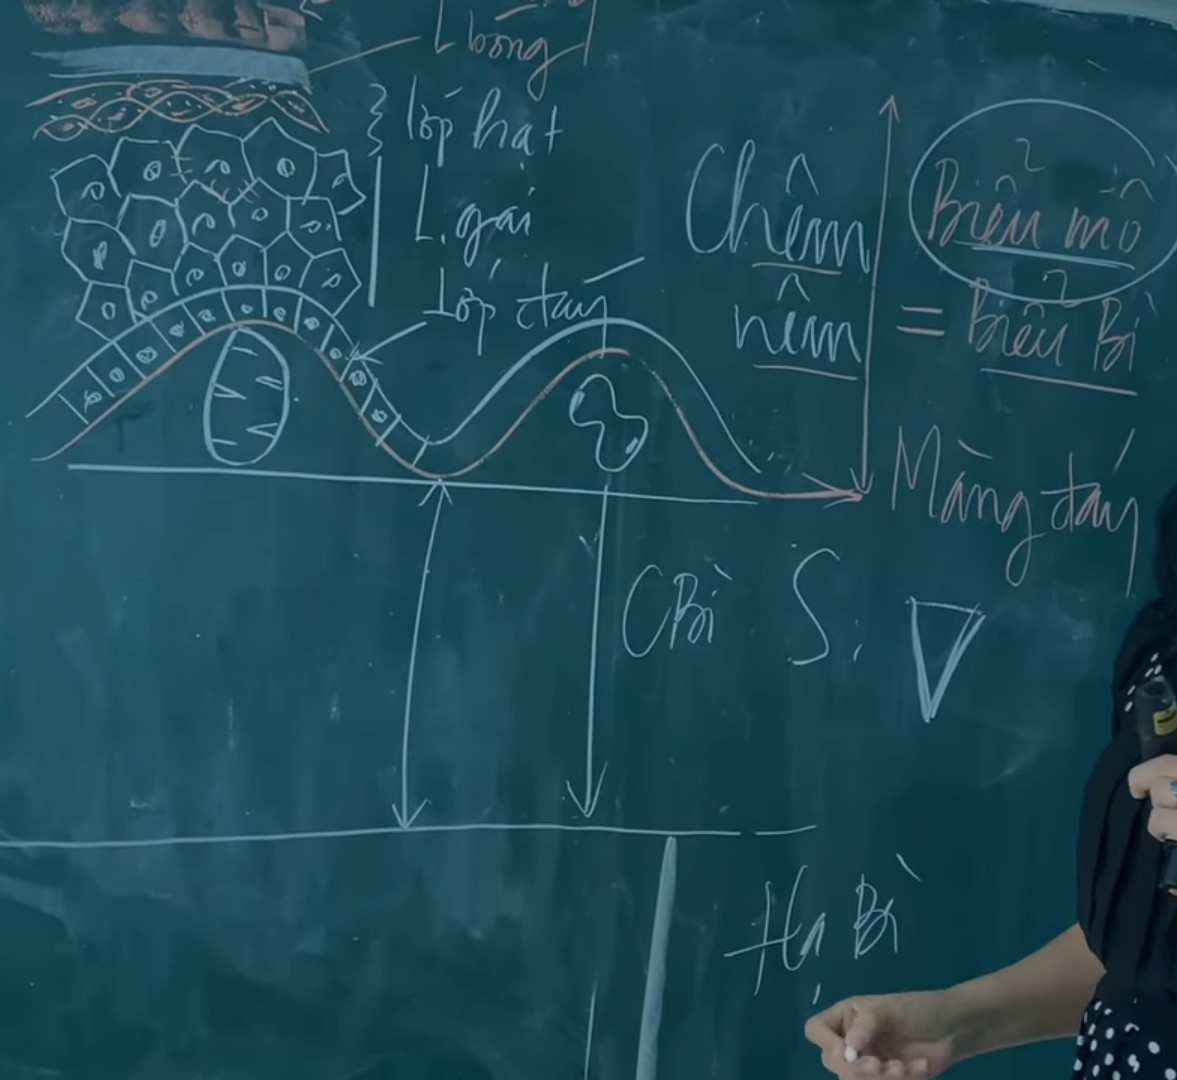 L bóng
lớp hạt
L. gai
Lớp đáy
Chêm
nêm
Biểu mô
= Biểu Bì
Màng đáy
CBì
S.
Hạ Bì